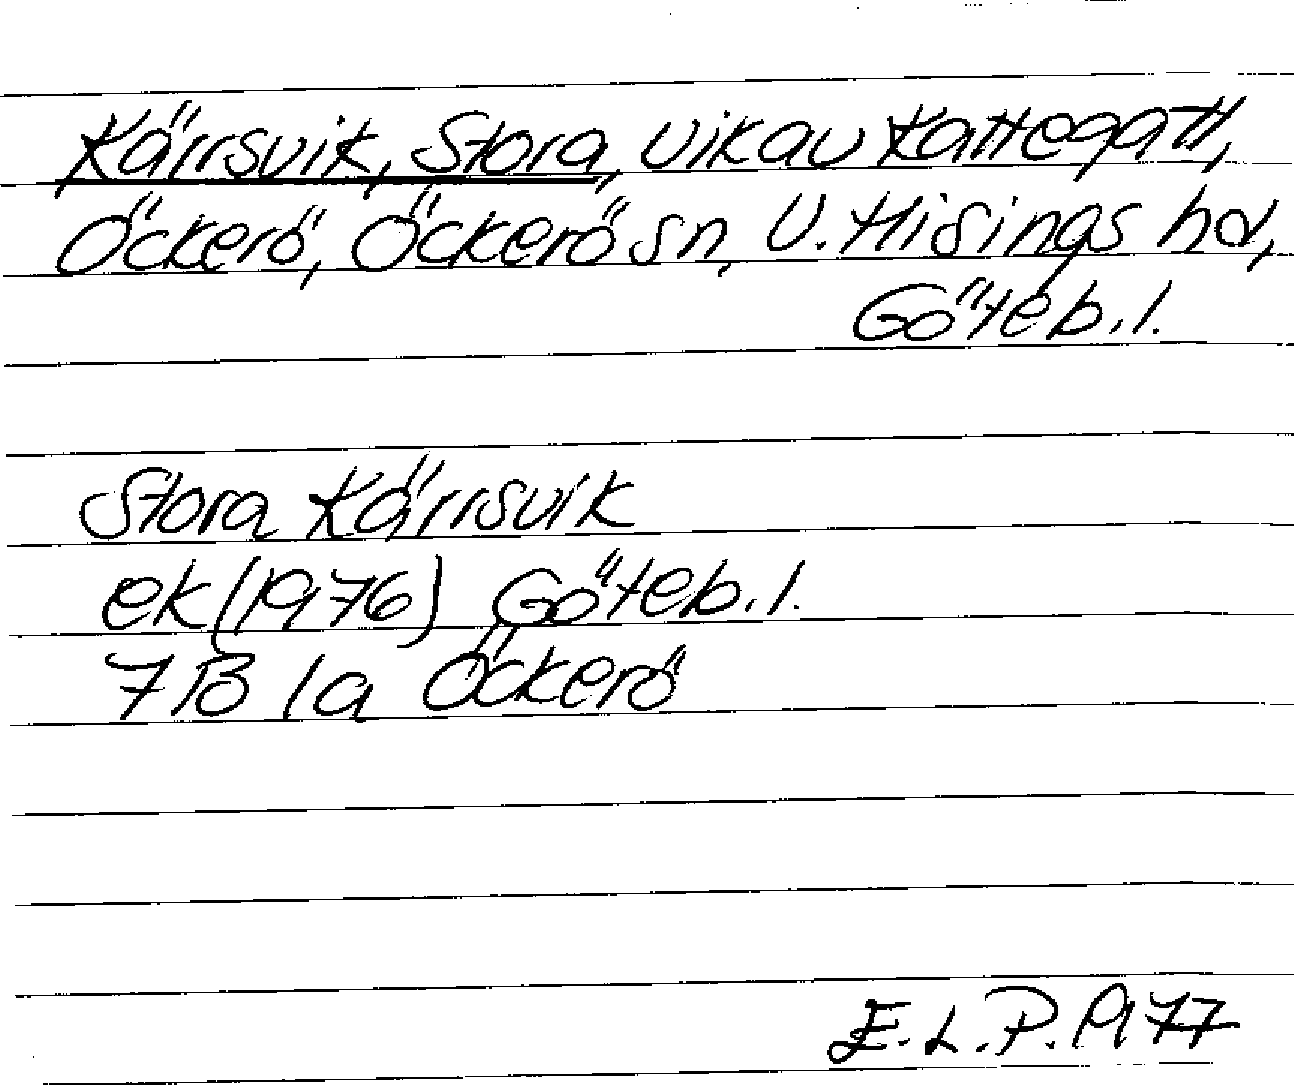 Kärrsvik, Stora, vik av Kattegatt,
Öckerö, Öckerö sn, V. Hisings hd,
Göteb. l.
Stora Kärrsvik
ek (1976) Göteb. l.
7B 1a Öckerö
E.L.P. 1977